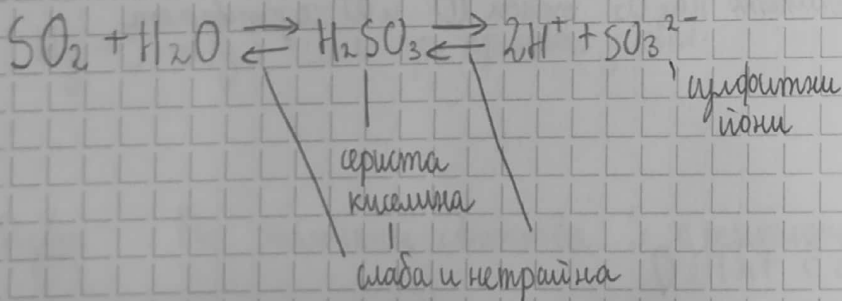 SO₂ + H₂O ⇄ H₂SO₃ ⇄ 2H⁺ + SO₃²⁻
сулфитни
йони
сериста
киселина
слаба и нетрайна